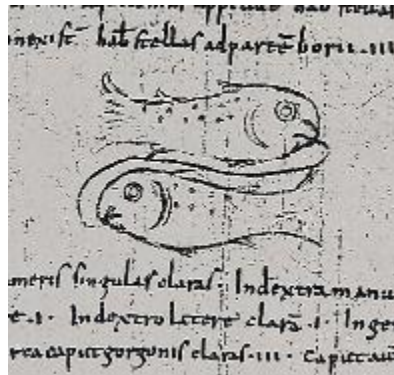 hab& stellas ad partē borii · III
umeris singulas claras · In dextra manu
e · I · In dextro latere clarā · I · In ge
rea caput gorgonis claras · III · Caput au